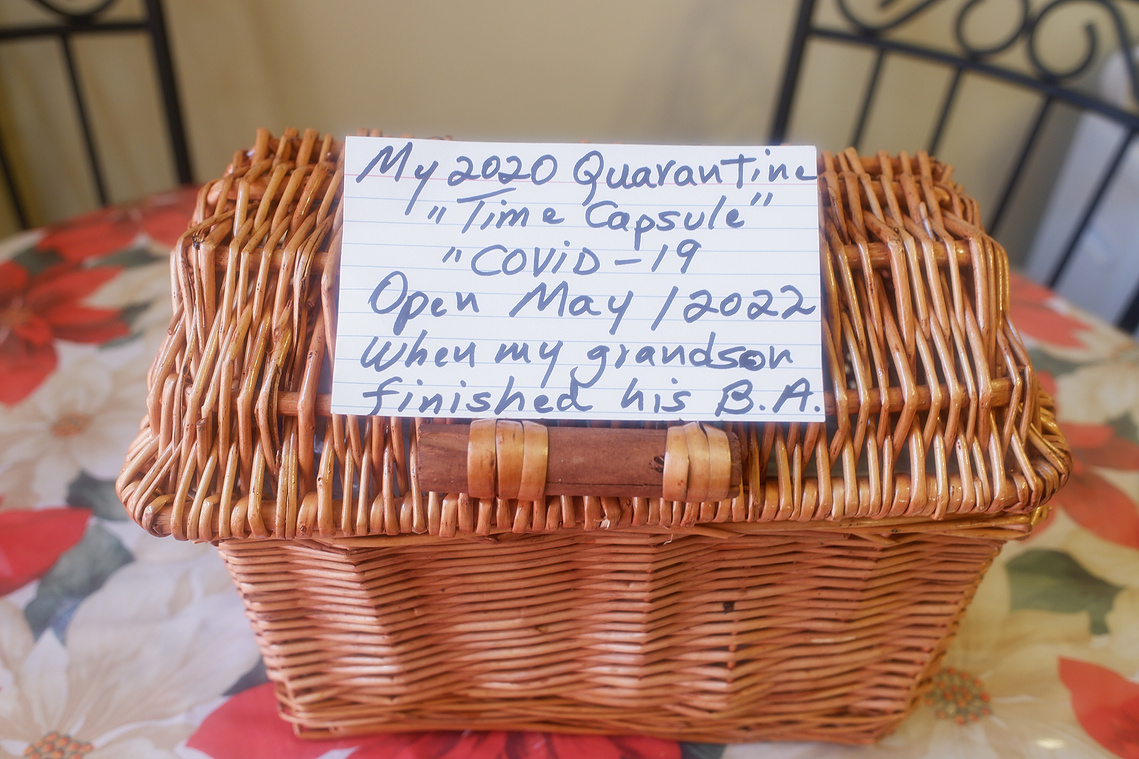 My 2020 Quarantine
"Time Capsule"
"COViD-19
Open May / 2022
When my grandson
finished his B.A.